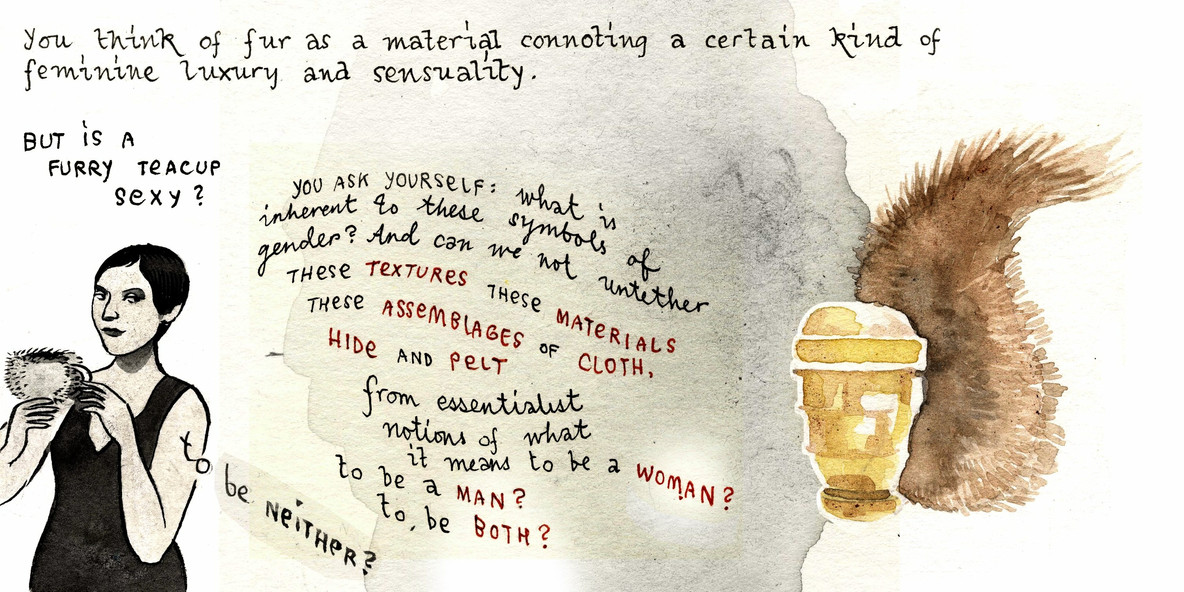 You think of fur as a material connoting a certain kind of
feminine luxury and sensuality.
BUT iS A
FURRY TEACUP
sexy?
YOU ASK YOURSELF: what is
inherent to these symbols of
gender? And can we not untether
THese TEXTURES THESE MATERIALS
THESE ASSEMBLAGES OF CLOTH,
HIDe AND PeLT
from essentialist
notions of what
it means to be a WOMAN?
to be a MAN?
to, be BOTH?
to
be NEiTHER?